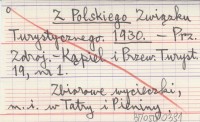 Z Polskiego Związku
Turystycznego. 1930. – Prz.
Zdroj.-Kąpiel i Przew. Turyst.
19, nr 1.
Zbiorowe wycieczki,
m. i. w Tatry i Pieniny.